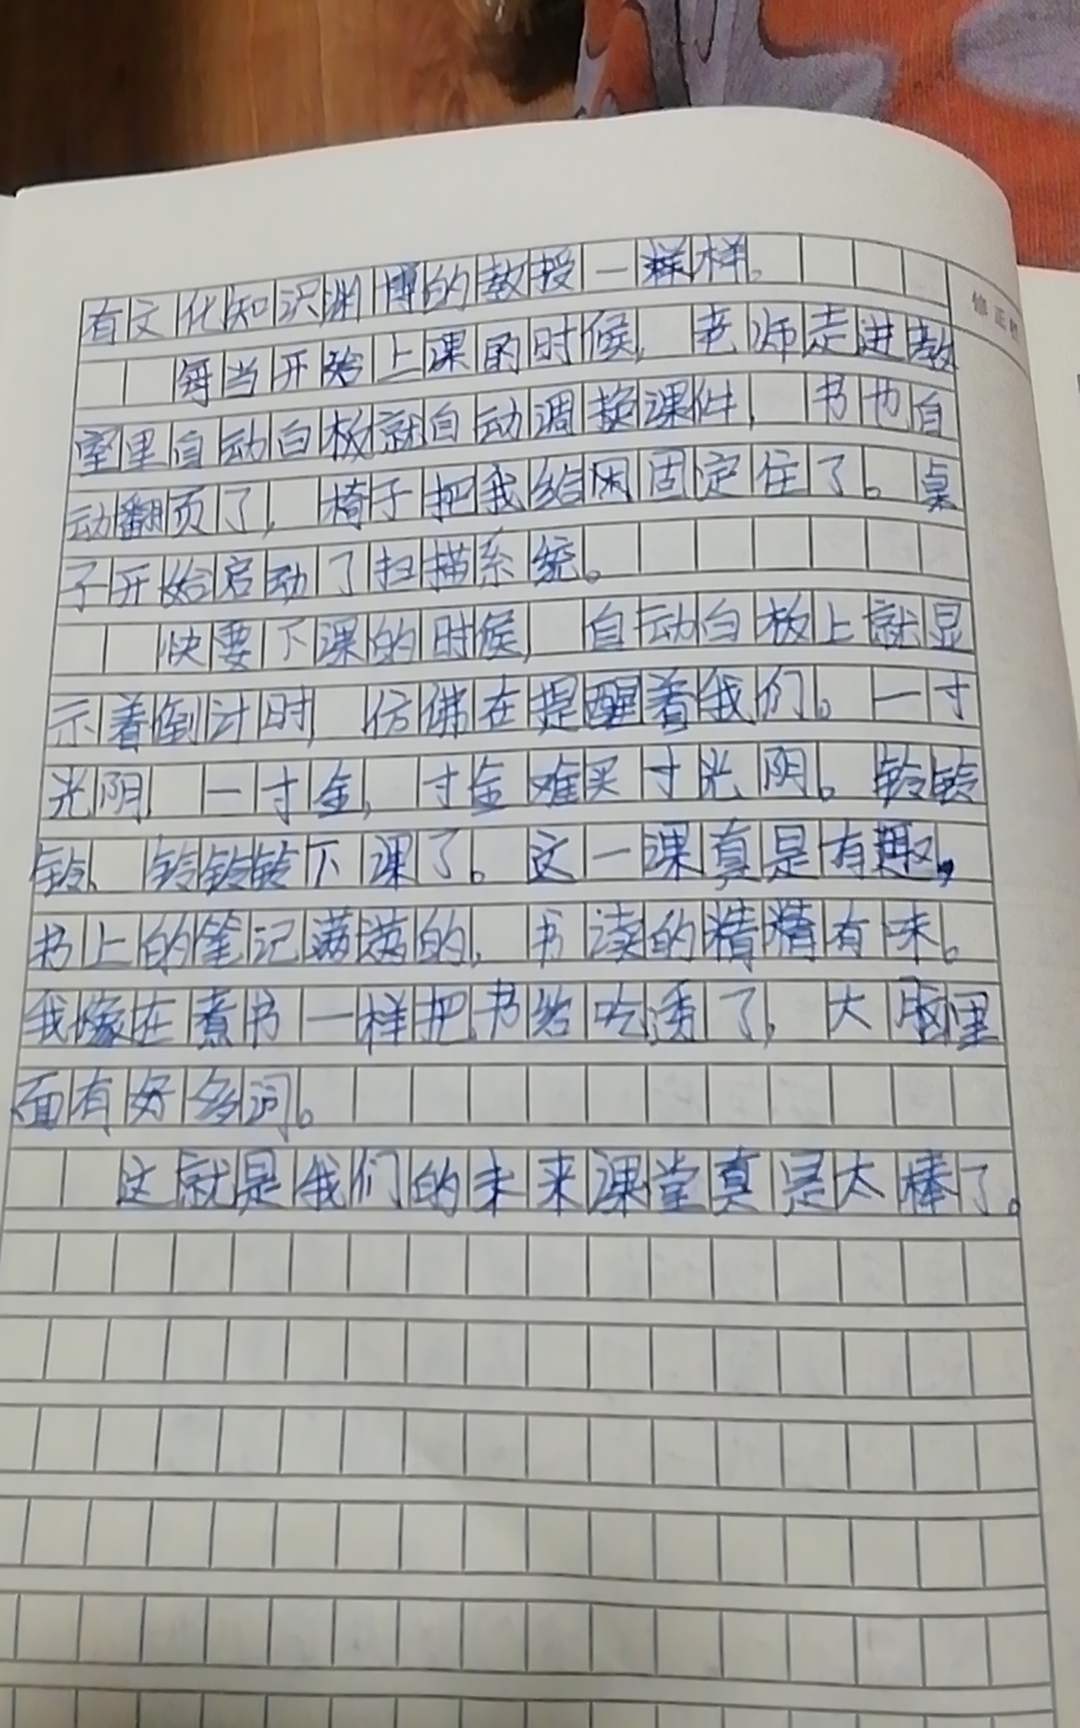 有文化知识渊博的教授一样样。
修正栏
每当开始上课的时候，老师走进教
室里自动白板就自动调换课件，书也自
动翻页了，椅子把我给困固定住了。桌
子开始启动了扫描系统。
快要下课的时候，自动白板上就显
示着倒计时，仿佛在提醒着我们。一寸
光阴，一寸金，寸金难买寸光阴。铃铃
铃、铃铃铃下课了。这一课真是有趣，
书上的笔记满满的，书读的精精有味。
我像在煮书一样把书给吃透了，大脑里
面有好多词。
这就是我们的未来课堂真是太棒了。